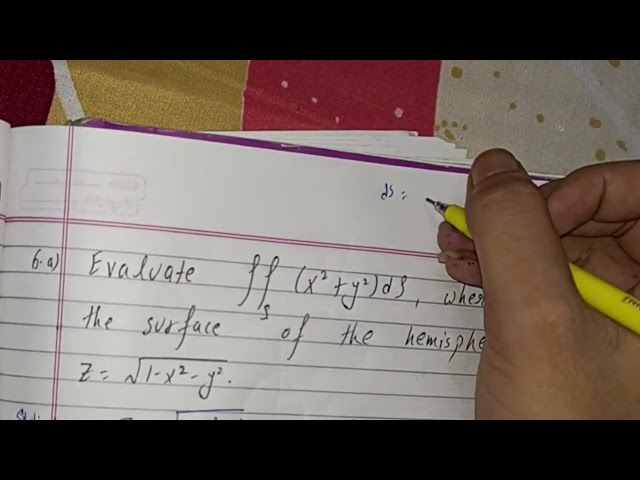 ds =
6.a) Evaluate ∬_S (x² + y²) dS, wher
the surface of the hemisphe
z = √1-x²-y².